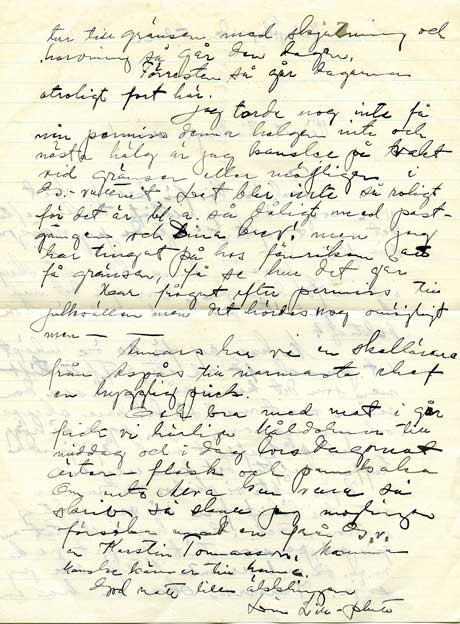 tur till gränsen med skjutning och
så går den dagen.
Förresten så går dagarna
otroligt fort här.
Jag torde nog inte få
min permiss denna helgen inte och
nästa helg är jag kanske på vakt
vid gränsen eller möjligen i
Det blir inte så roligt
för det är bl. a. så dåligt med post-
gången och Dina brev, men jag
har tingat på hos fänriken att
få gränsen, få se hur det går
Har frågat efter permiss till
julkvällen men det hördes nog omöjligt
men —
Annars har vi en skollärare
från Aspås till närmaste chef
en hygglig prick.
Och bra med mat i går
fick vi härliga kåldolmar till
middag och i dag torsdagsmat
ärter – fläsk och pannkaka
Om inte Mera kan vara så
så skall jag möjligen
försöka med en från Ö.v.
en Kerstin Tomasson, Mamma
kanske känner till henne.
God natt lilla älsklingen
Din